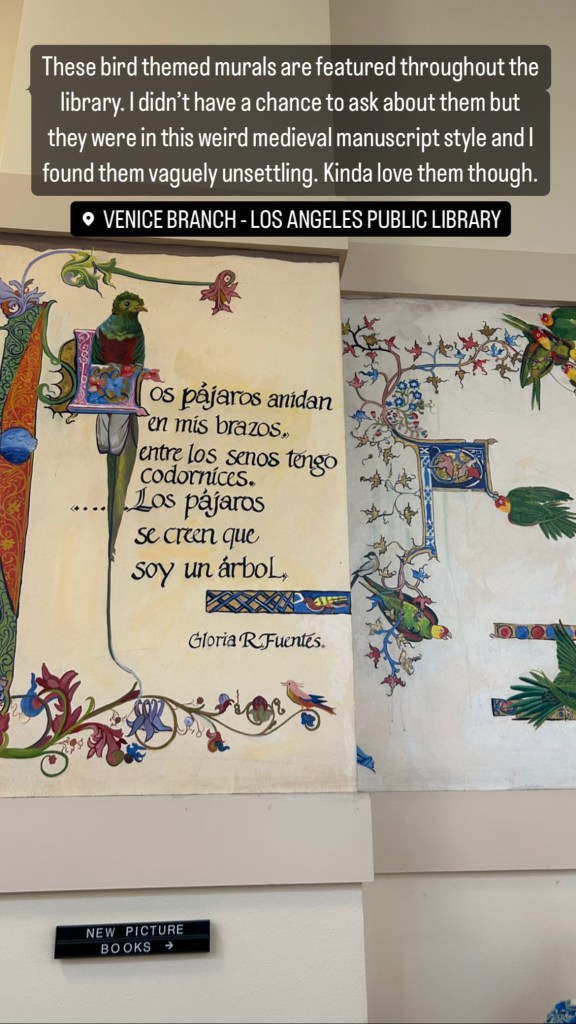 These bird themed murals are featured throughout the
library. I didn't have a chance to ask about them but
they were in this weird medieval manuscript style and I
found them vaguely unsettling. Kinda love them though.
VENICE BRANCH - LOS ANGELES PUBLIC LIBRARY
Los pájaros anidan
en mis brazos,
entre los senos tengo
codornices.
....Los pájaros
se creen que
soy un árbol.
Gloria R. Fuentes.
NEW PICTURE
BOOKS →